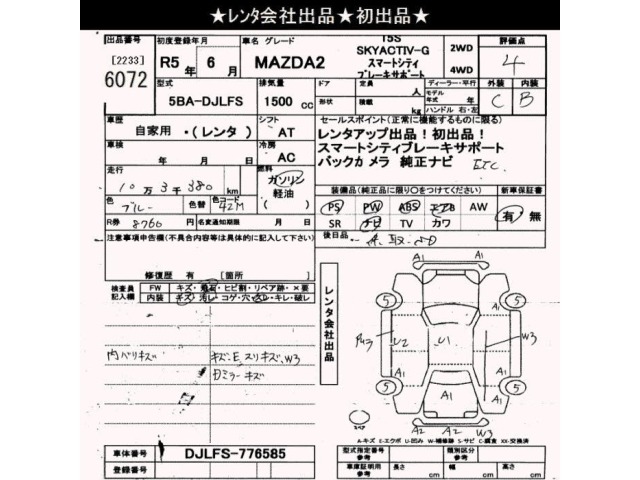 ★レンタ会社出品★初出品★
出品番号 初度登録年月 車名 グレード 15S 評価点
[2233] R5年 6月 MAZDA2 SKYACTIV-G 2WD 4
6072 スマートシティ
ブレーキサポート 4WD
型式 排気量 ドア 定員 人 ディーラー・平行 外装 内装
5BA-DJLFS 1500 cc 形状 積載 kg モデル年式 年 C B
ハンドル 右・左
車歴 シフト セールスポイント(正常に機能するものに限る)
自家用 ・(レンタ) AT レンタアップ出品!初出品!
車検 冷房 スマートシティブレーキサポート
年 月 日 AC バックカメラ 純正ナビ ETC
走行 燃料
10万3千380 km ガソリン 装備品(純正品に限り○をつけてください) 新車保証書
軽油
色 ブルー 色替 色コード 42M ( ) PS PW ABS エアB AW 有・無
R券 8760 名変通知期限 月 日 SR ナビ TV カワ
注意事項申告欄(不具合内容等は具体的に記入して下さい) 後日品
修復歴 有 [箇所 ]
検査員記入欄 FW キズ・飛石・ヒビ割・リペア跡・×要
内装 キズ・汚レ・コゲ・穴・スレ・キレ・破レ
レンタ会社出品
内バリキズ キズ、E、スリキズ、W3
Fミラーキズ
A1
A1
5 5
A1
U2 U1 W3
A1
5 5
A1 A1
A2 A2 W3
スペア
A-キズ E-エクボ U-凹み W-補修跡 S-サビ C-腐食 XX-交換済
車体番号 DJLFS-776585 型式指定番号 類別区分
登録番号 車庫証明用参考 長さ cm 幅 cm 高さ cm